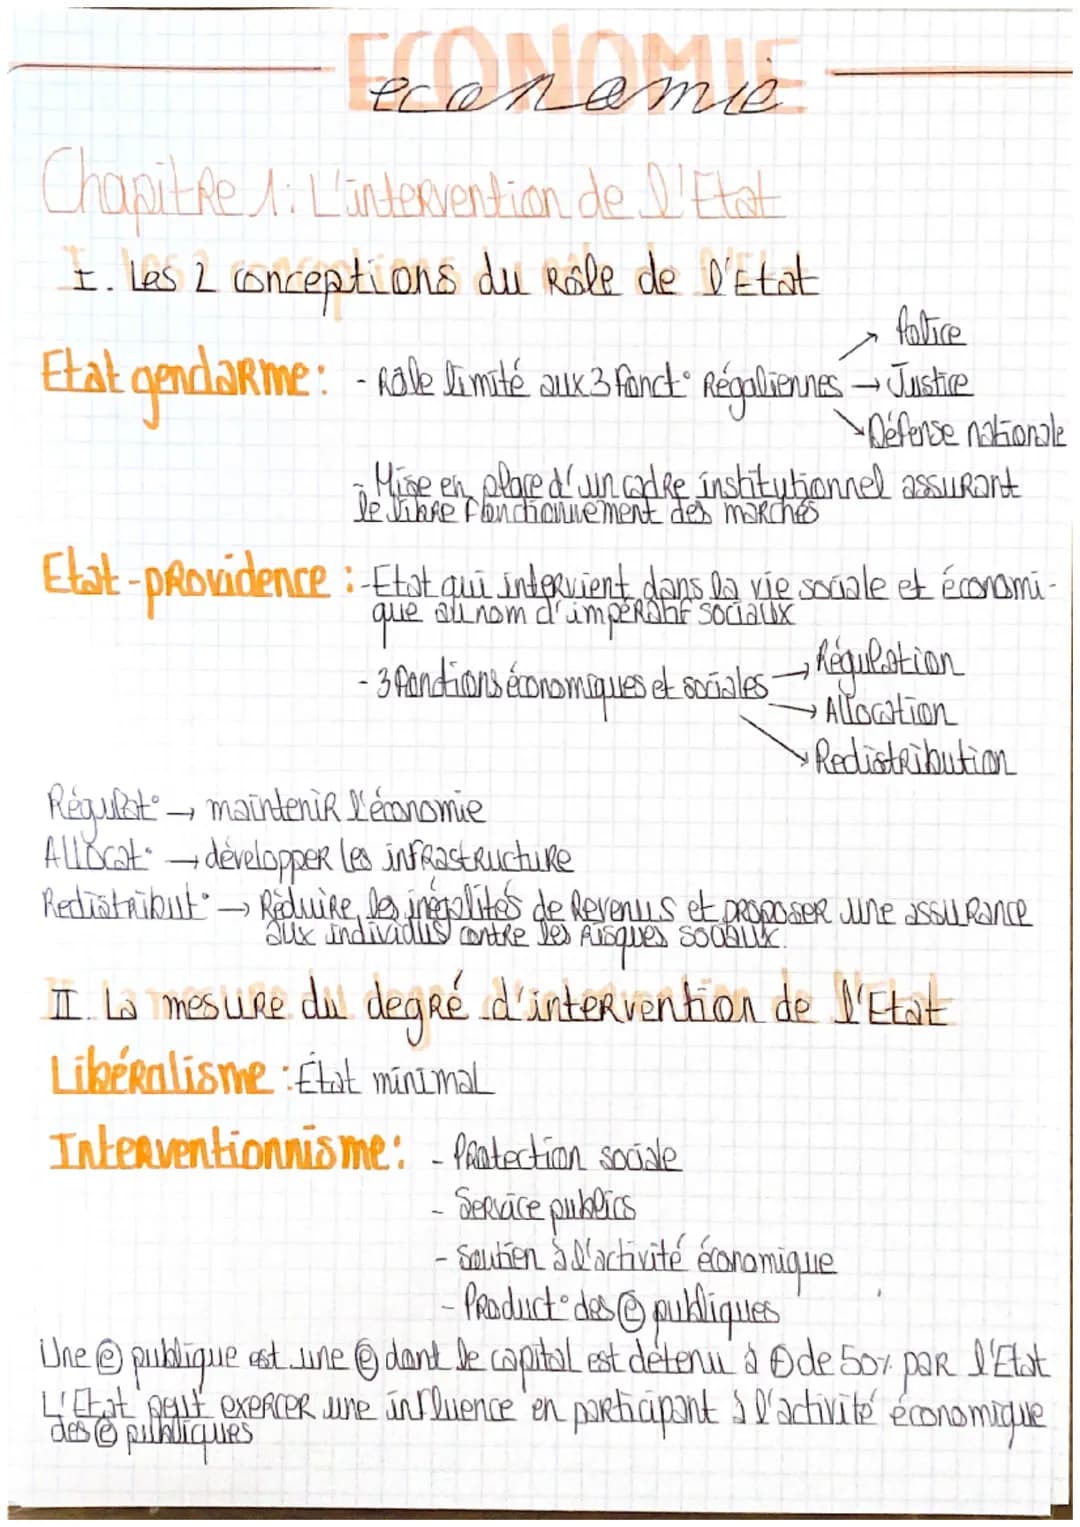 ECONOMIE
economie
Chapitre 1 : L'intervention de l'Etat
I. Les 2 conceptions du rôle de l'Etat
Etat gendarme : - Rôle limité aux 3 fonct° Régaliennes → Police
→ Justice
→ Défense nationale
- Mise en place d'un cadre institutionnel assurant
le libre fonctionnement des marchés
Etat-providence : - Etat qui intervient dans la vie sociale et économi-
que au nom d'impératif sociaux
- 3 fonctions économiques et sociales → Régulation
→ Allocation
→ Redistribution
Régulat° → maintenir l'économie
Allocat° → développer les infrastructure
Redistribut° → Réduire les inégalités de Revenus et proposer une assurance
aux individus contre les risques sociaux.
II. La mesure du degré d'intervention de l'Etat
Libéralisme : État minimal
Interventionnisme : - Protection sociale
- Service publics
- Soutien à l'activité économique
- Product° des ⓔ publiques
Une ⓔ publique est une ⓔ dont le capital est détenu à ⊕ de 50% par l'Etat
L'Etat peut exercer une influence en participant à l'activité économique
des ⓔ publiques